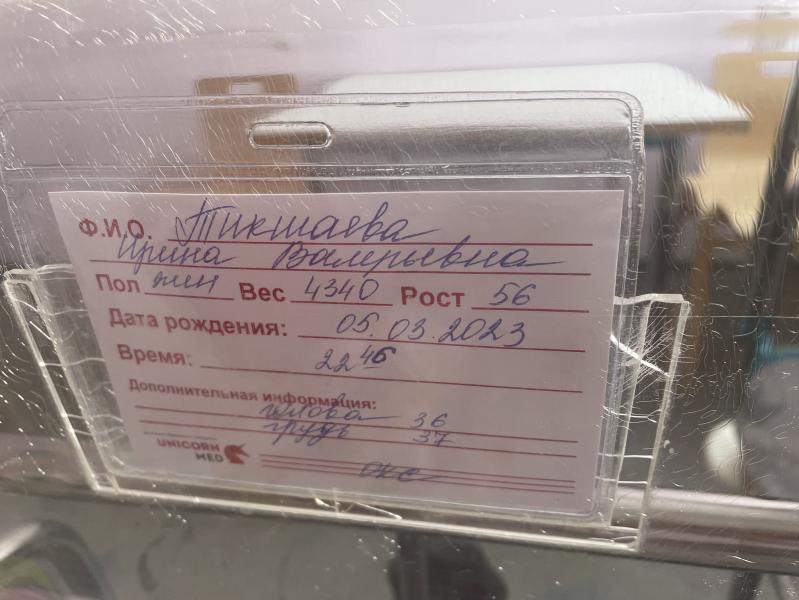 Ф.И.О. Тикшаева
Ирина Валерьевна
Пол жен Вес 4340 Рост 56
Дата рождения: 05.03.2023
Время: 22 46
Дополнительная информация:
голова 36
грудь 37
UNICORN
MED
окс